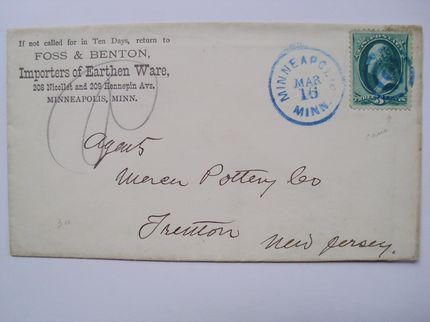 If not called for in Ten Days, return to
FOSS & BENTON,
Importers of Earthen Ware,
208 Nicollet and 209 Hennepin Avs.
MINNEAPOLIS, MINN.
MINNEAPOLIS
MAR
16
MINN.
Agent
Mercer Pottery Co
Trenton
New Jersey.